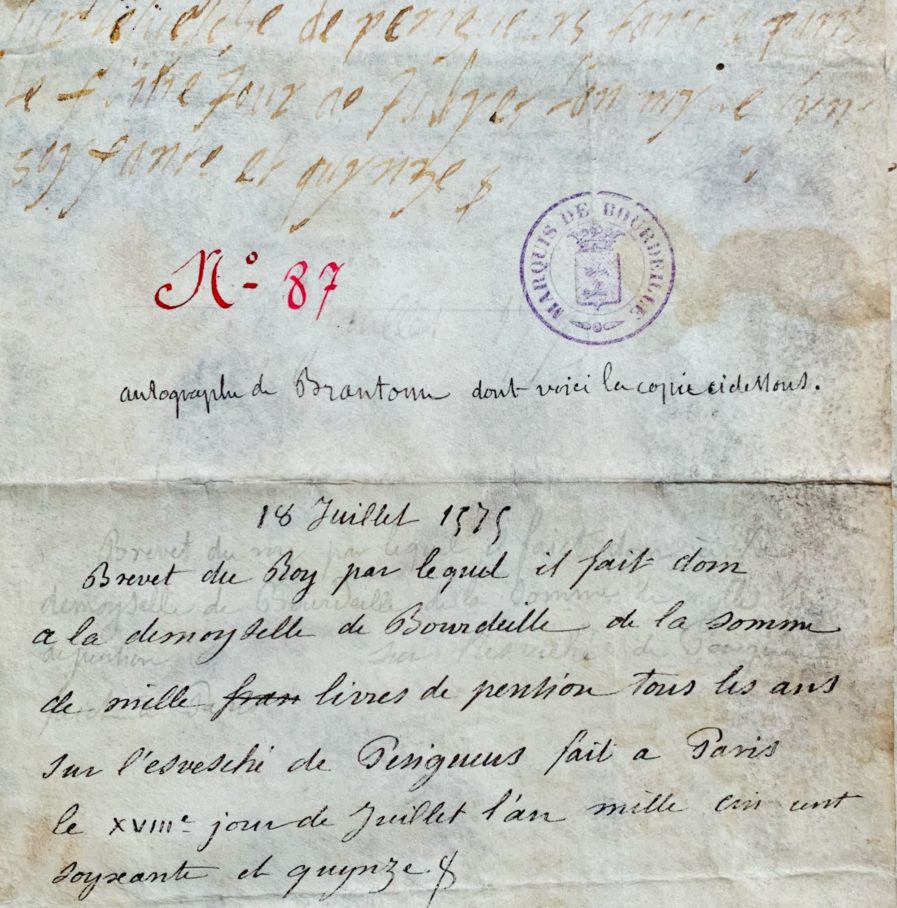 sur l'evesche de perigueus faict a paris
le jour de l'an mylle
soyssante et quynze
Nº 87
MARQUIS DE BOURDEILLE
autographe de Brantome dont voici la copie cidessous.
18 Juillet 1575
Brevet du Roy par lequel il fait dom
a la demoyselle de Bourdeille de la somme
de mille fran livres de pention tous les ans
sur l'esvesché de Perigueus fait a Paris
le XVIIIe jour de Juillet l'an mille cin cent
soyxante et quynze